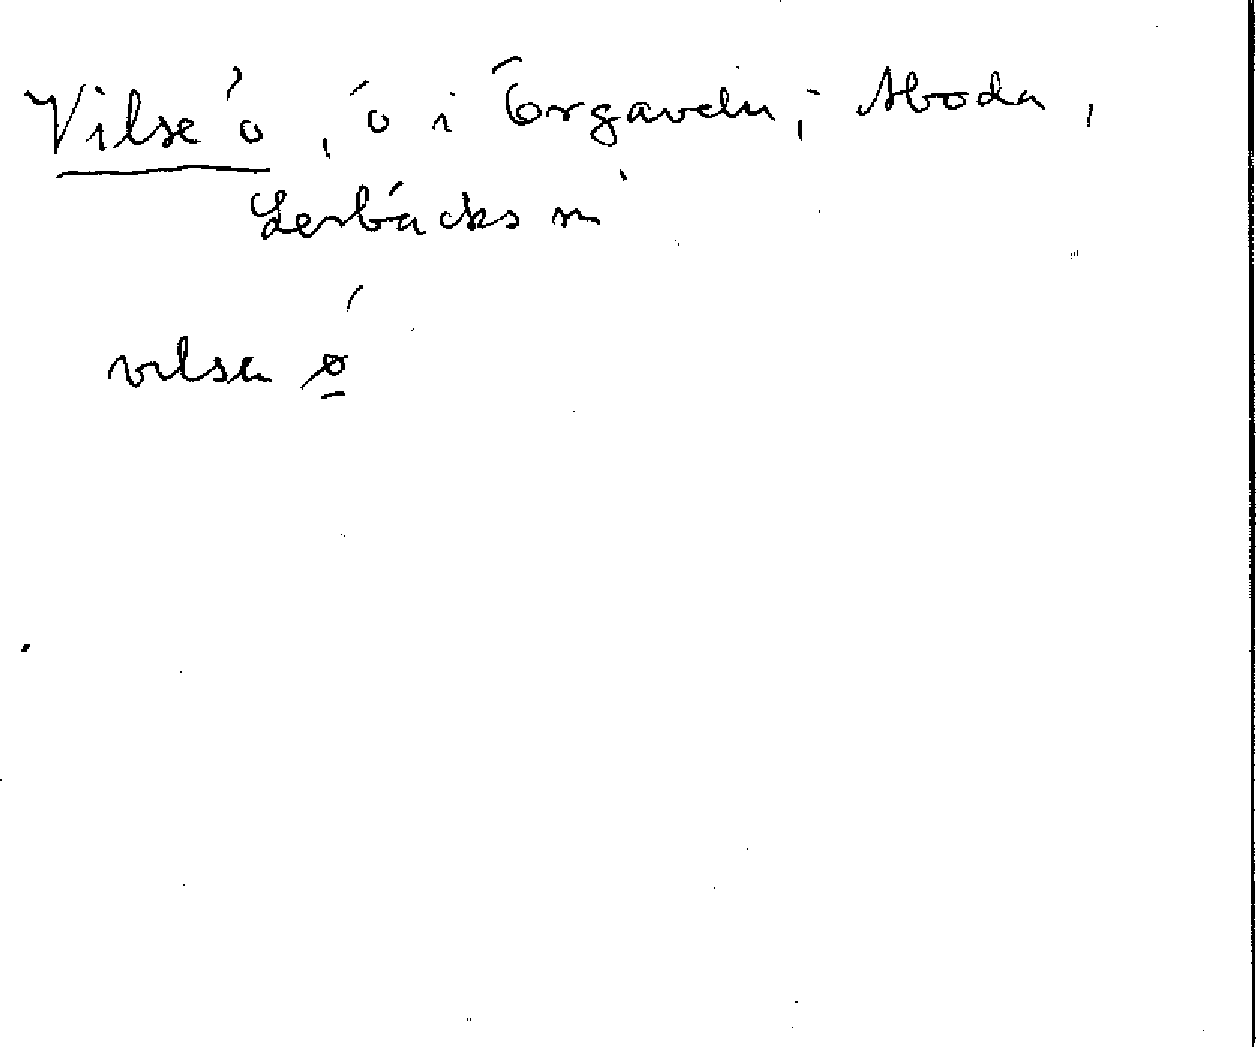 Vilse ö, ö i Örgaveln, Åboda,
Lerbäcks sn
vilsa ø